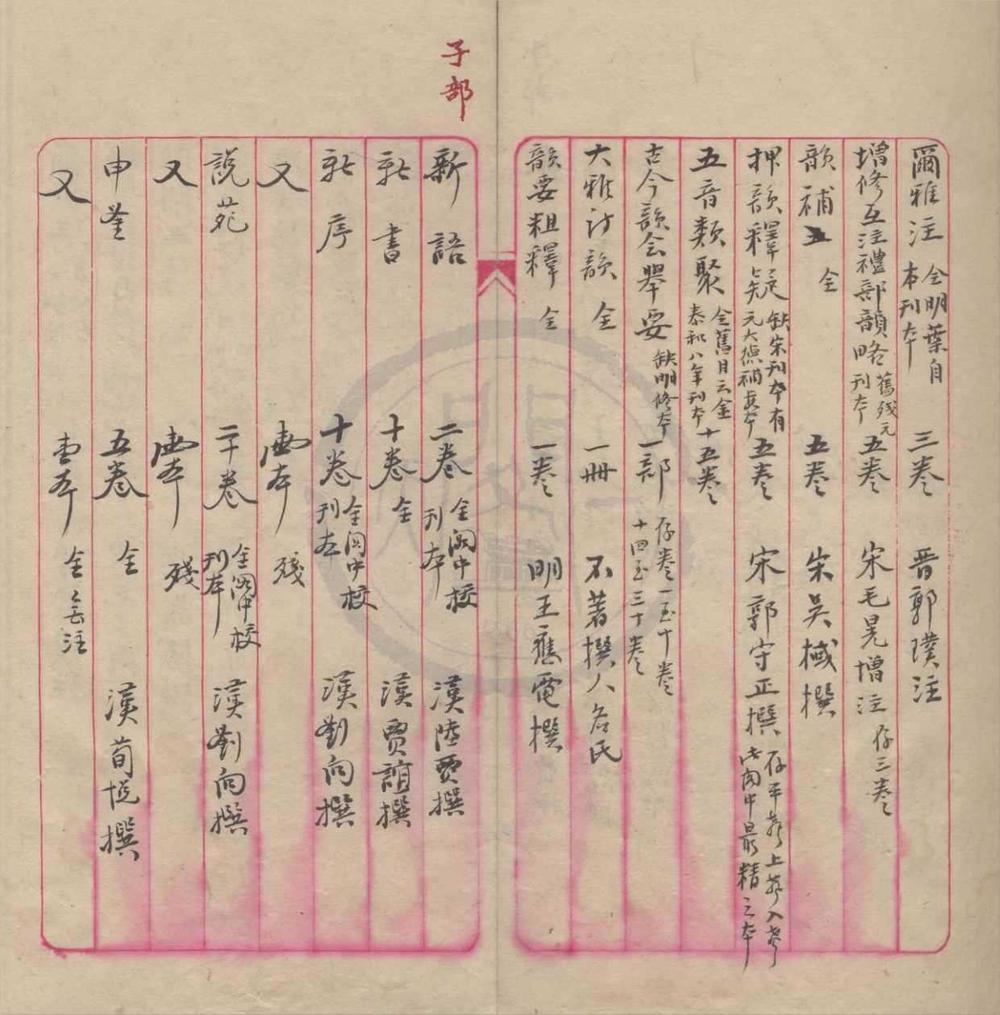 爾雅注 全明葉自本刊本 三卷 晋郭璞注
增修互注禮部韻略 舊殘元刊本 五卷 宋毛晃增注 存三卷
韻補 全 五卷 宋吳棫撰
押韻釋疑 缺宋刊本有元大德補板本 五卷 宋郭守正撰 存平聲上聲入聲 閣中最精之本
五音類聚 全舊目云金泰和八年刊本 十五卷
古今韻会舉要 缺明修本 一部 存卷一至十卷十四至三十卷
大雅詩韻 全 一冊 不著撰人名氏
韻要粗釋 全 一卷 明王應電撰
子部
新語 二卷 全閣中校刊本 漢陸賈撰
新書 十卷 全 漢賈誼撰
新序 十卷 全閣中校刊本 漢劉向撰
又 壹本 殘
説苑 二十卷 全閣中校刊本 漢劉向撰
又 壹本 殘
申鑒 五卷 全 漢荀悅撰
又 壹本 全無注